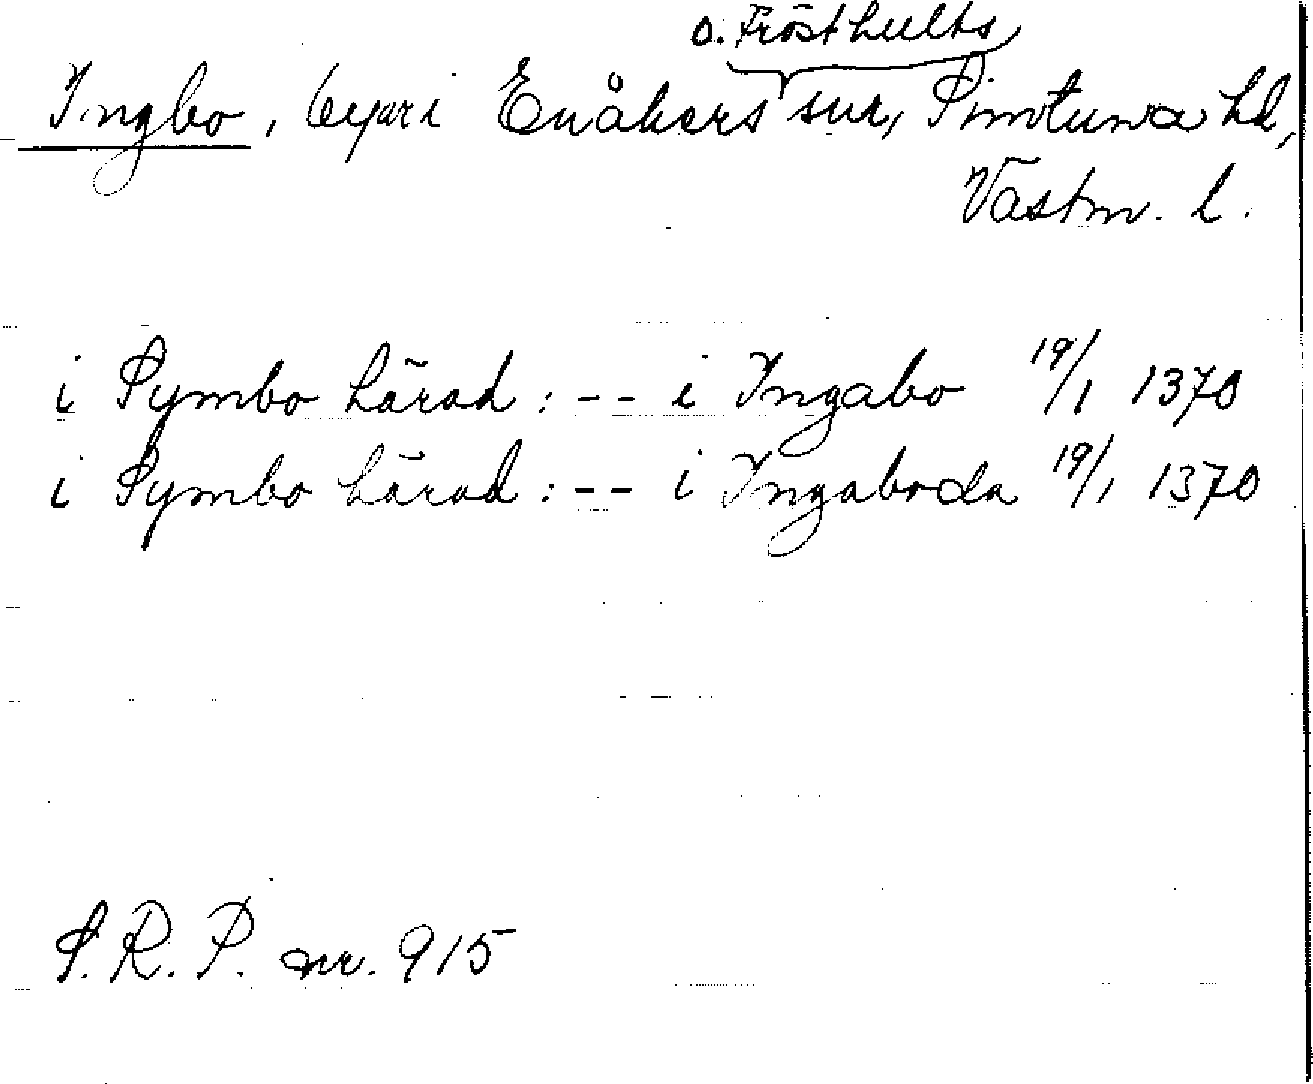 o. Frösthults
Ingbo, byar i Enåkers snr, Simtuna hd,
Västm. l.
i Symbo härad : -- i Ingabo 19/1 1370
i Symbo härad : -- i Ingaboda 19/1 1370
S. R. P. nr. 915